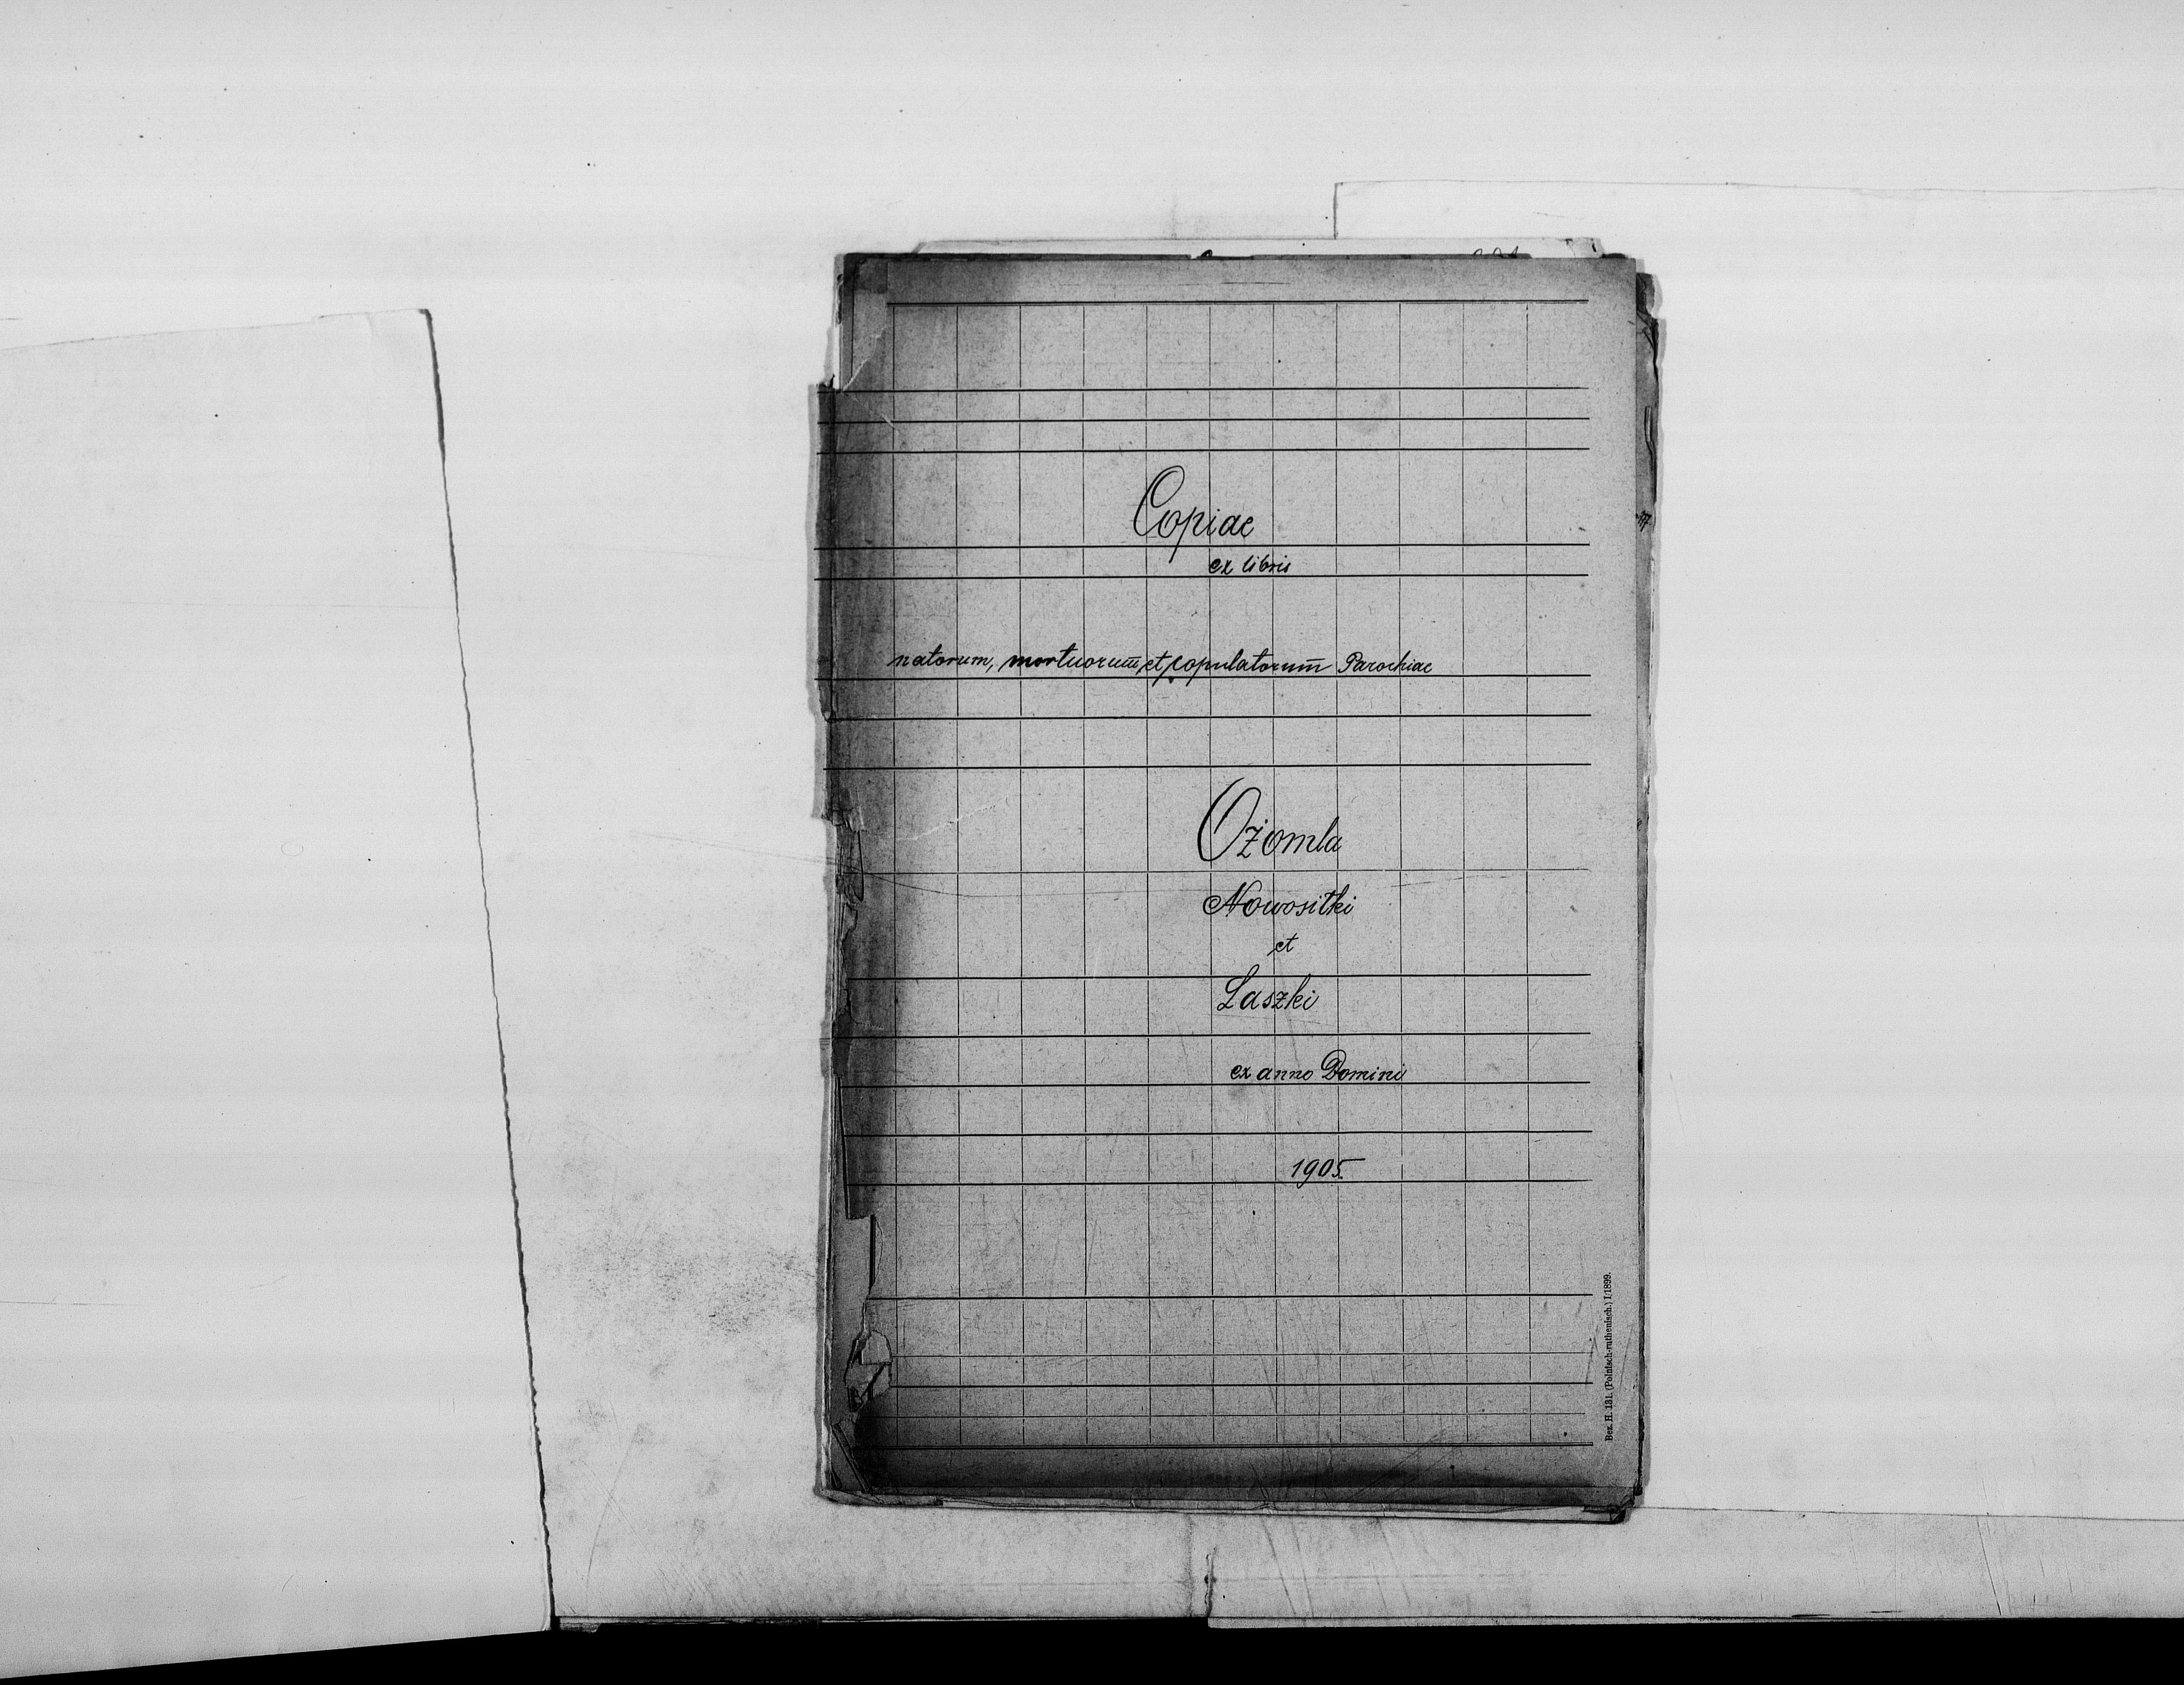 Copiae
ex libris
natorum, mortuorum̄, et copulatorum̄ Parochiae
Ożomla
Nowositki
et
Laszki
ex anno Domini
1905.
Bez. H. 131. (Polnisch-ruthenisch.) I/1899.